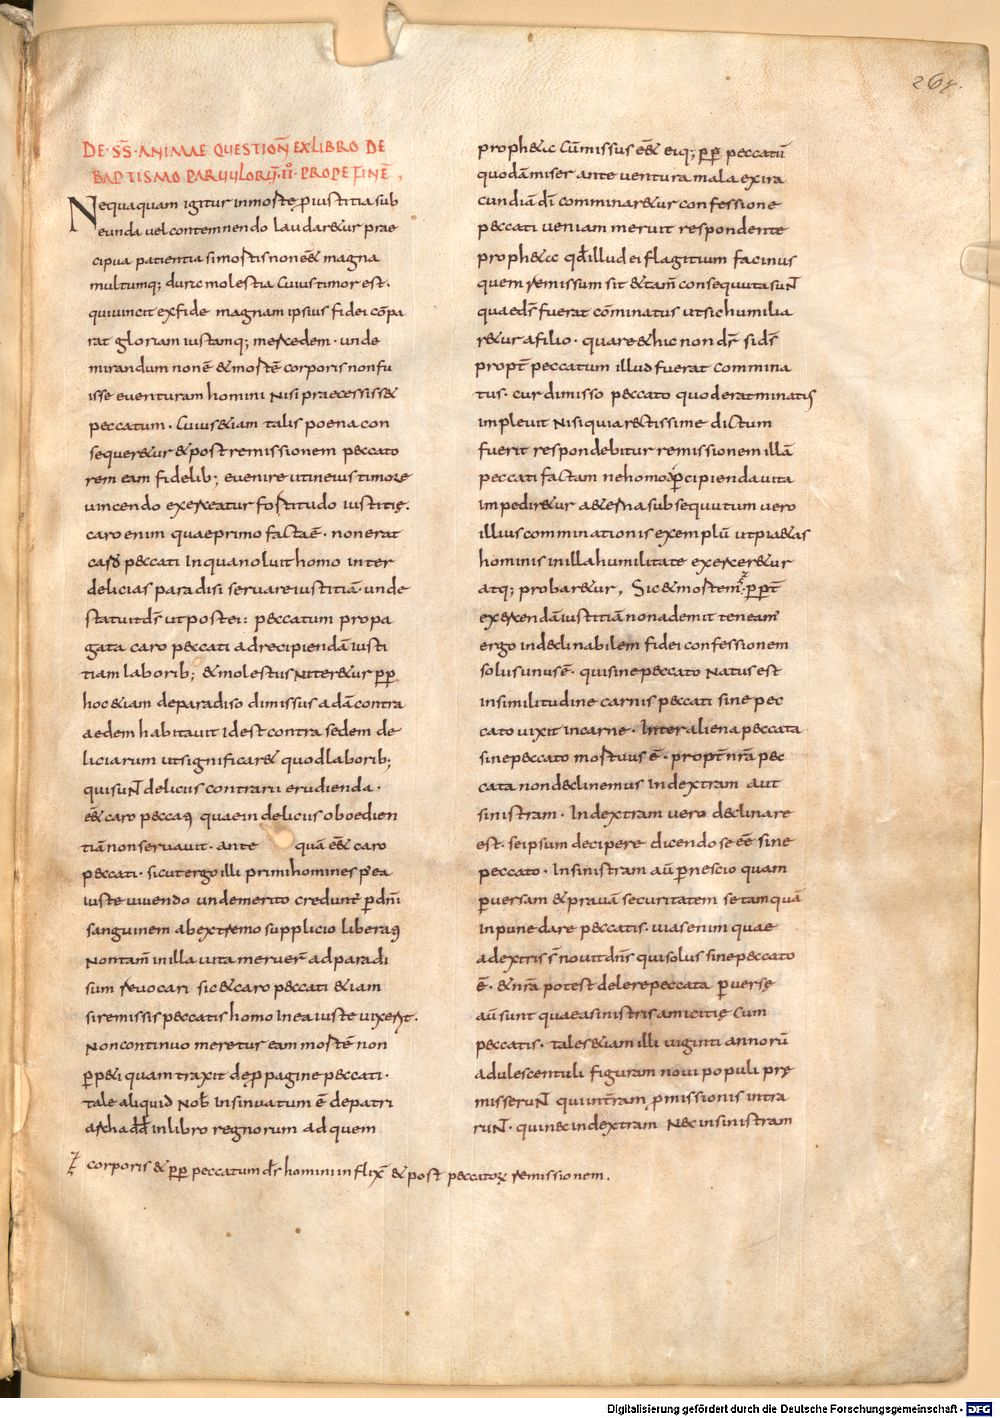 264.
DE · SS̄ · ANIMAE QUESTION̄ EX LIBRO DE
BAPTISMO PARVVLORV̄ · II · PROPE FINĒ,
Nequaquam igitur in morte p̱ iustitia sub
eunda vel contemnendo laudaretur prae
cipua patientia si mortis non eēt magna
multumq; dura molestia Cuius timorē est.
qui uincit ex fide magnam ipsius fidei cōpa
rat gloriam iustamq; mercedem · unde
mirandum non ē et mortē corporis non fu
isse euenturam homini Nisi praecessisset
peccatum · Cuius etiam talis poena con
sequeretur et post remissionem peccato
rem eam fidelib; euenire ut in eius timore
uincendo exerceatur fortitudo iustitię.
caro enim quae primo facta ē · non erat
caro peccati In qua noluit homo inter
delicias paradisi seruare iustitiā · unde
statuit ds̄ ut post ei: peccatum propa
gata caro peccati ad recipiendā iusti
tiam laborib; et molestiis Niteretur pp̱
hoc etiam de paradiso dimissus adā contra
aedem habitauit Id est contra sedem de
liciarum ut significaret quod laborib;
qui suNT deliciis contrarii erudienda ·
eēt caro peccati quae in deliciis oboedien
tiā non seruauit · ante quā eēt caro
peccati · sicut ergo illi primi homines p̱ ea
iuste uiuendo unde merito creduntr̄ p̱ dnī
sanguinem ab extremo supplicio liberati
Non tam̄ in illa uita meruer̄ ad paradi
sum reuocari sic et caro peccati etiam
si remissis peccatis homo In ea iuste uixerit.
Non continuo meretur eam mortē non
p̱peti quam traxit de p̱pagine peccati ·
tale aliquid Nob̄ Insinuatum ē de patri
archa dd̄ in libro regnorum ad quem
corporis et pp̱ peccatum ds̄ homini inflix̄ et post peccatorꝝ remissionem.
prophetic Cū missus eēt eiq; pp̱ peccatū
quod amiser ante uentura mala ex ira
cundiā dī comminaretur confessione
peccati ueniam meruit respondente
prophetic qd̄ illud ei flagitium facinus
quem remissum sit et tam̄ consequuta suNT
quae ds̄ fuerat cōminatus ut sic humilia
retur a filio · quare et hic non dr̄ si ds̄
propt̄ peccatum illud fuerat commina
tus · cur dimisso peccato quod erat minatus
impleuit Nisi quia rectissime dictum
fuerit respondebitur remissionem illā
peccati factam ne homo p̱cipienda uita
impediretur aeterna subsequutum uero
illius comminationis exemplū ut pietas
hominis in illa humilitate exerceretur
atq; probaretur, Sic et mortem · pp̱t
exercendā iustitiā non ademit teneam̄
ergo indeclinabilem fidei confessionem
solus unus ē · qui sine peccato Natus est
in similitudine carnis peccati sine pec
cato uixit in carne · Inter aliena peccata
sine peccato mortuus ē · propt̄ nrā pec
cata non declinemus In dextram aut
sinistram · In dextram uero declinare
est · se ipsum decipere dicendo se eē sine
peccato · In sinistram aū p̱ nescio quam
p̱uersam et prauā securitatem se tamquā
Inpune dare peccatis · uias enim quae
a dextris s̄ nouit dn̄s qui solus sine peccato
ē · et nrā potest delere peccata p̱uerse
aū sunt quae a sinistris amicitię Cum
peccatis · tales etiam illi uiginti annorū
adulescentuli figuram noui populi prę
miserunt qui in tr̄ram p̱missionis intra
ruNT · qui nec in dextram Nec in sinistram
Digitalisierung gefördert durch die Deutsche Forschungsgemeinschaft - DFG